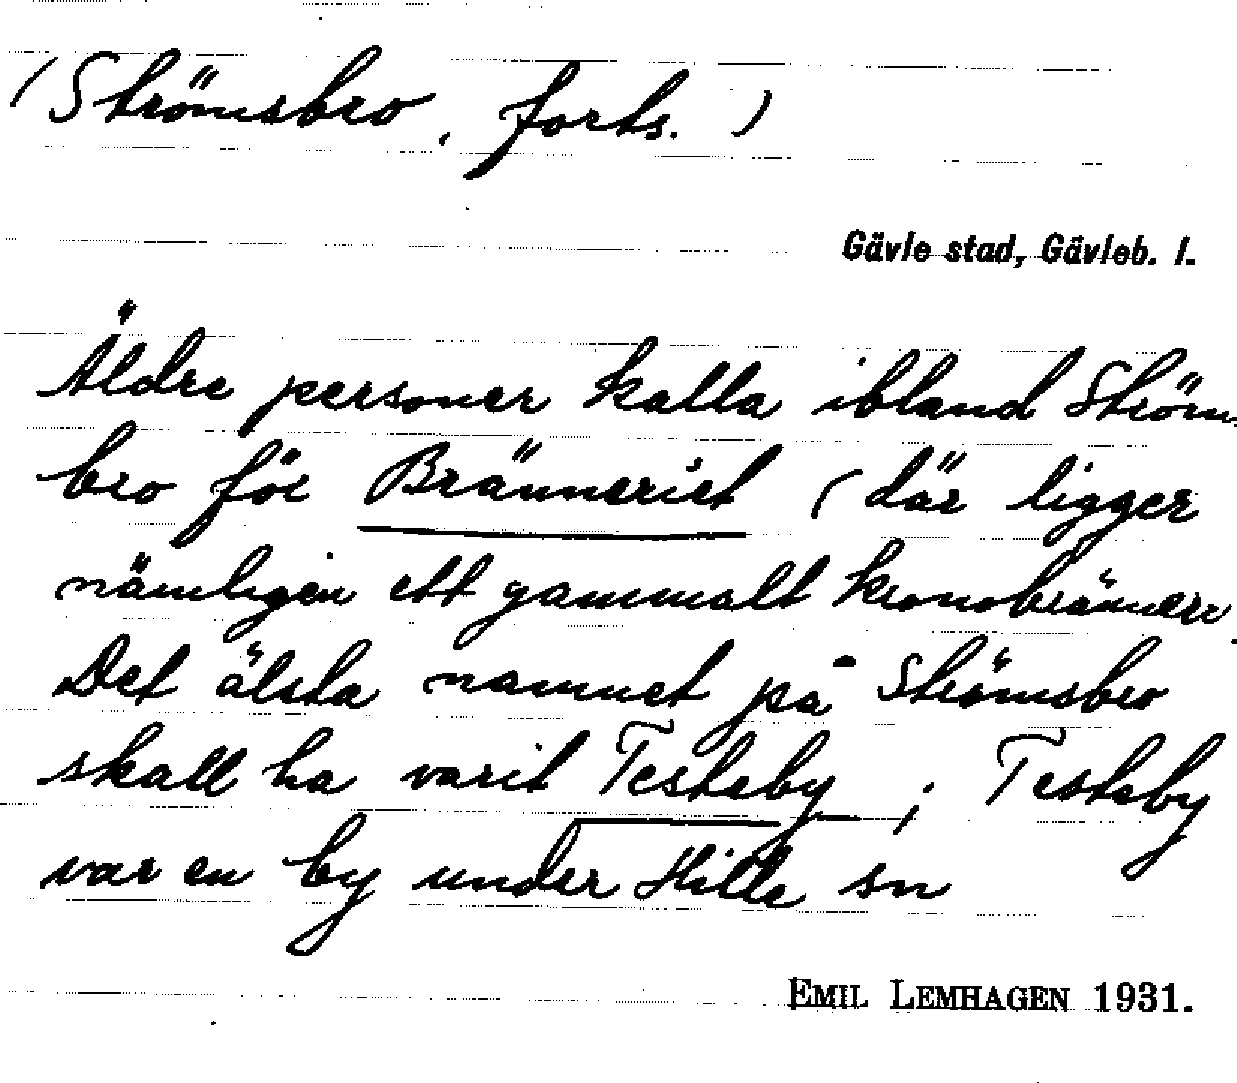 (Strömsbro, forts.)
Gävle stad, Gävleb. l.
Äldre personer kalla ibland Ström-
bro för Bränneriet (där ligger
nämligen ett gammalt kronobränneri.
Det älsta namnet på Strömsbro
skall ha varit Testeby; Testeby
var en by under Hille sn
EMIL LEMHAGEN 1931.